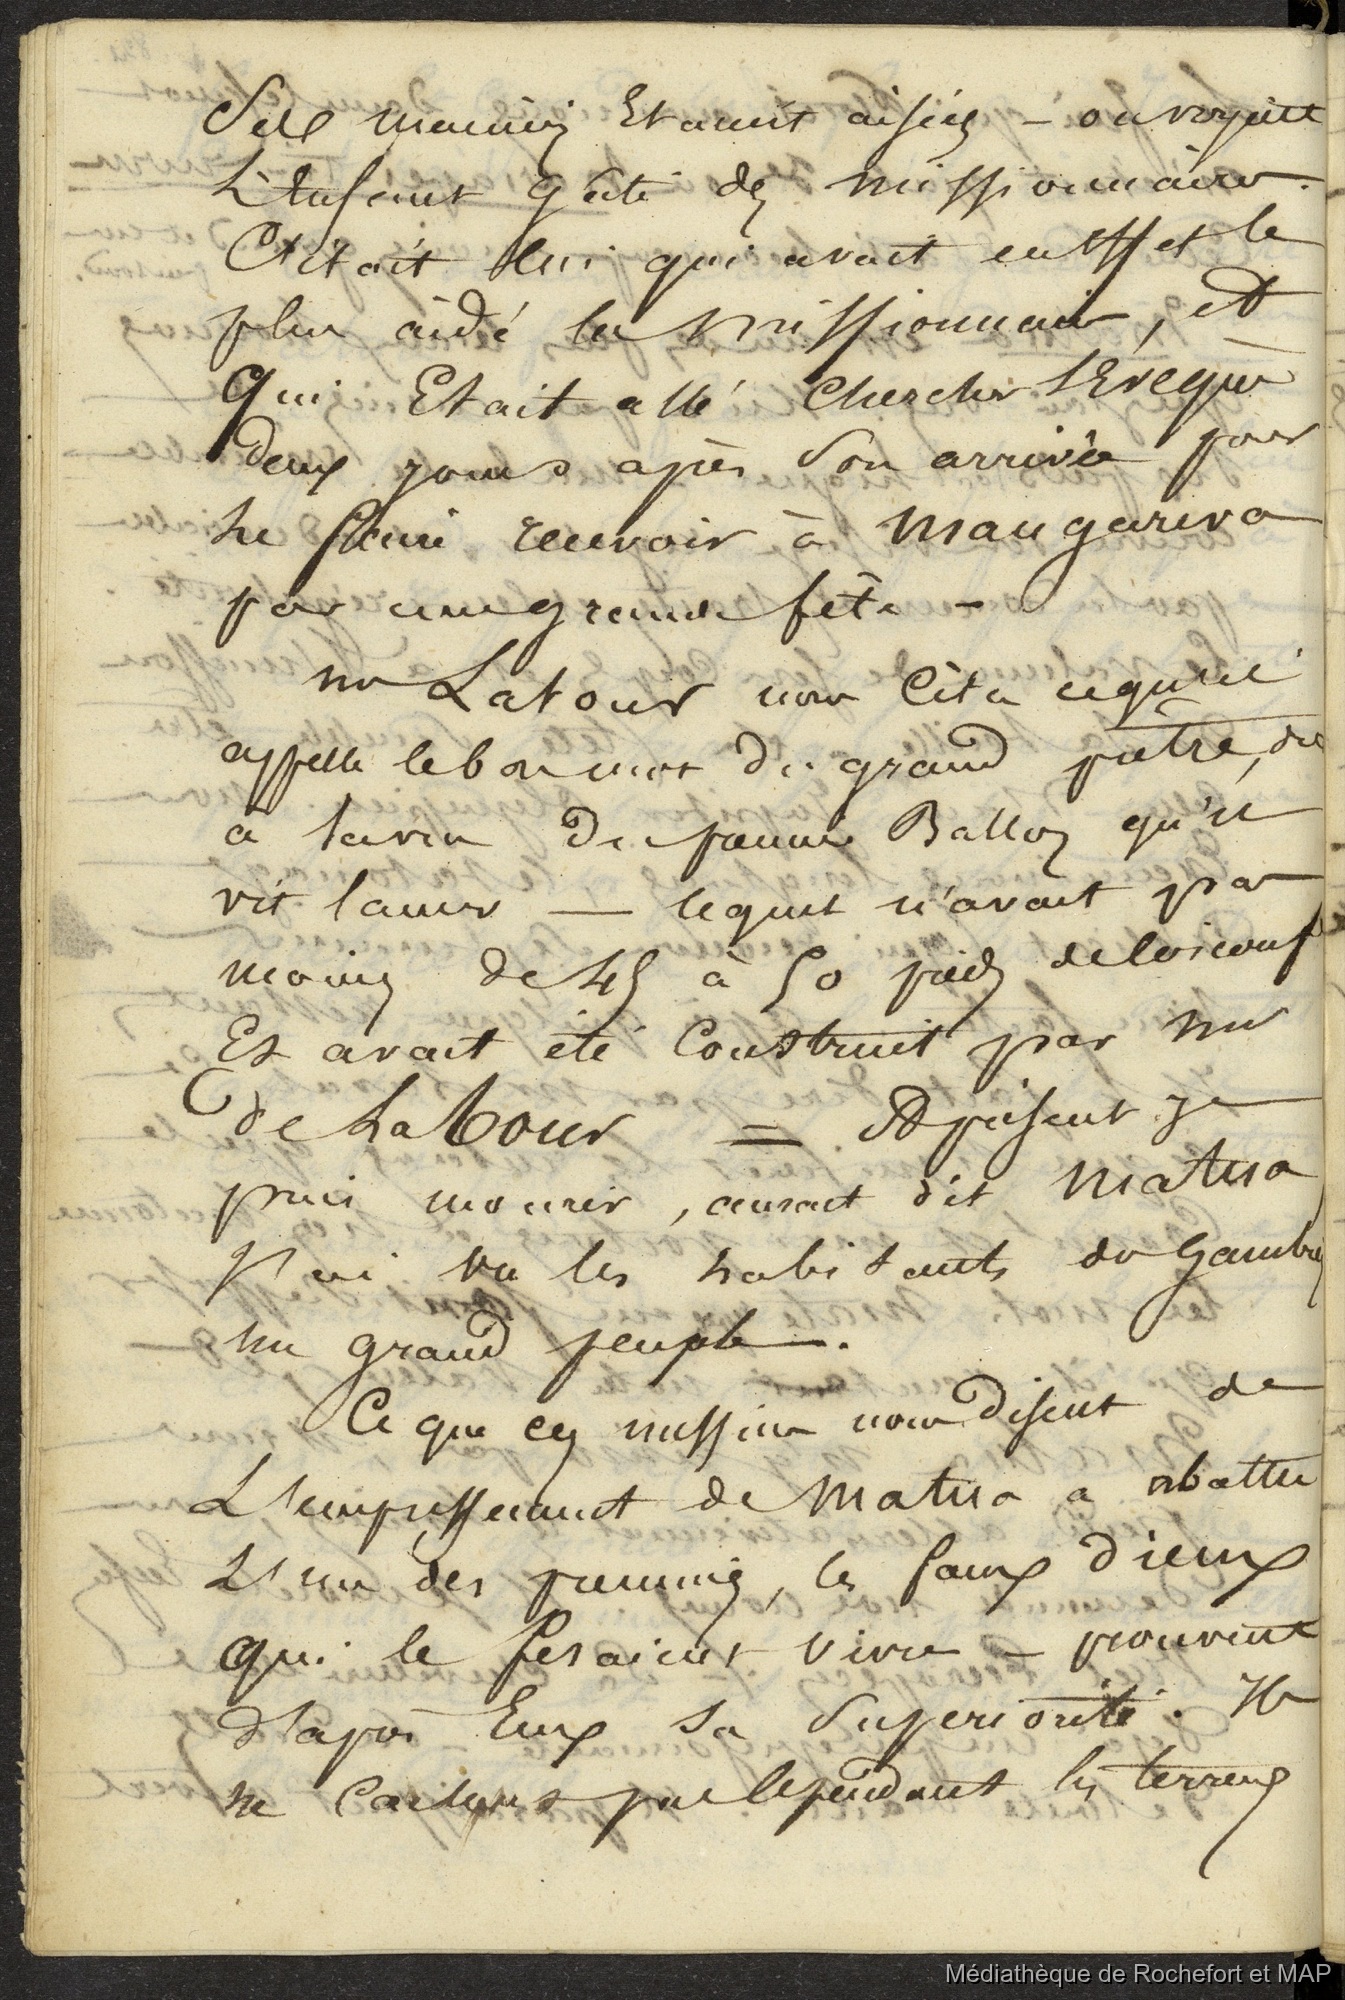 Ses manières Etaient aisées – on voyait
L'Enfant gâté des missionnaires.
C'était lui qui avait en effet le
plus aidé les missionnaires, et
qui Etait allé chercher l'Evêque
deux jours après son arrivée pour
le faire recevoir à Mangareva
par une grande fête –
mr Latour nous cita ce qu'il
appelle le bon mot du grand prêtre, dit
à la vue du Balloz qu'il
vit lancer — lequel n'avait pas
moins de 45 à 50 pieds de long
Et avait été Construit par mr
de La tour = Apresent je
puis mourir, aurait dit Matua
j'ai vu les habitants de Gambier
un grand peuple.
Ce que ces messieurs nous disent de
L'empressement de Matua a abattre
L'un des premiers, les faux dieux
qui le fesaient vivre – prouvent
d'après Eux sa Superiorité. Ils
ne pas cependant les terreurs
Médiathèque de Rochefort et MAP